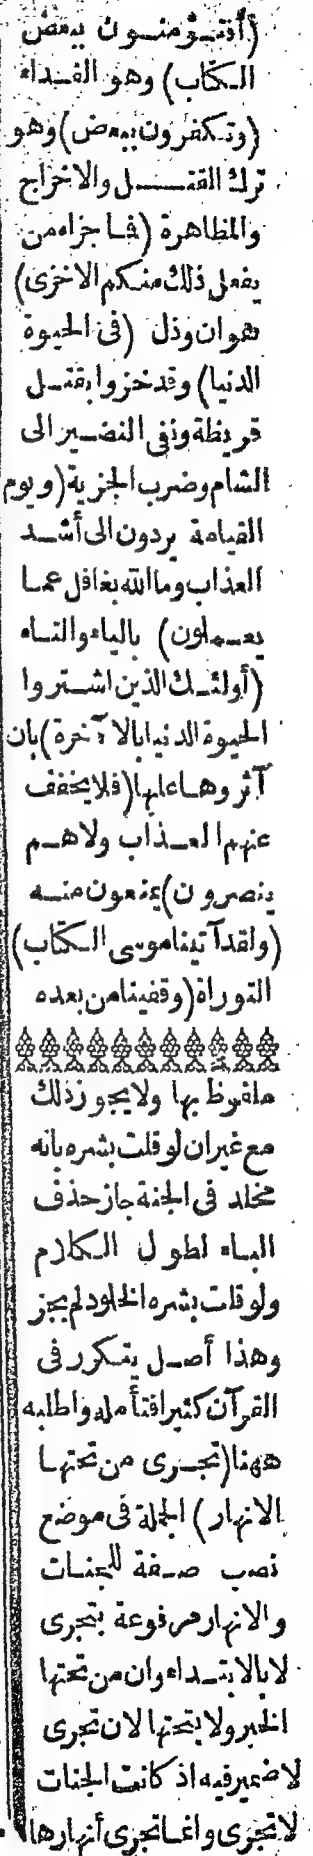 (أفتؤمنون ببعض
الكتاب) وهو الفداء
(وتكفرون ببعض) وهو
ترك القتل والاخراج
والمظاهرة (فما جزاء من
يفعل ذلك منكم الا خزى)
هوان وذل (فى الحيوة
الدنيا) وقد خزوا بقتل
قريظة ونفى النضير الى
الشام وضرب الجزية (ويوم
القيامة يردون الى أشد
العذاب وما الله بغافل عما
يعملون) بالياء والتاء
(أولئك الذين اشتروا
الحيوة الدنيا بالآخرة) بان
آثروها عليها (فلا يخفف
عنهم العذاب ولا هم
ينصرون) يمنعون منه
(ولقد آتينا موسى الكتاب)
التوراة (وقفينا من بعده
ملفوظ بها ولا يجوز ذلك
مع غير ان لو قلت بشره بانه
مخلد فى الجنة جاز حذف
الباء لطول الكلام
ولو قلت بشره الخلود لم يجز
وهذا أصل يتكرر فى
القرآن كثيرا فتأمله واطلبه
ههنا (تجرى من تحتها
الانهار) الجملة فى موضع
نصب صفة للجنات
والانهار مرفوعة بتجرى
لا بالابتداء وان من تحتها
الخبر ولا بتحتها لان تجرى
لا ضمير فيه اذ كانت الجنات
لا تجرى وانما تجرى أنهارها